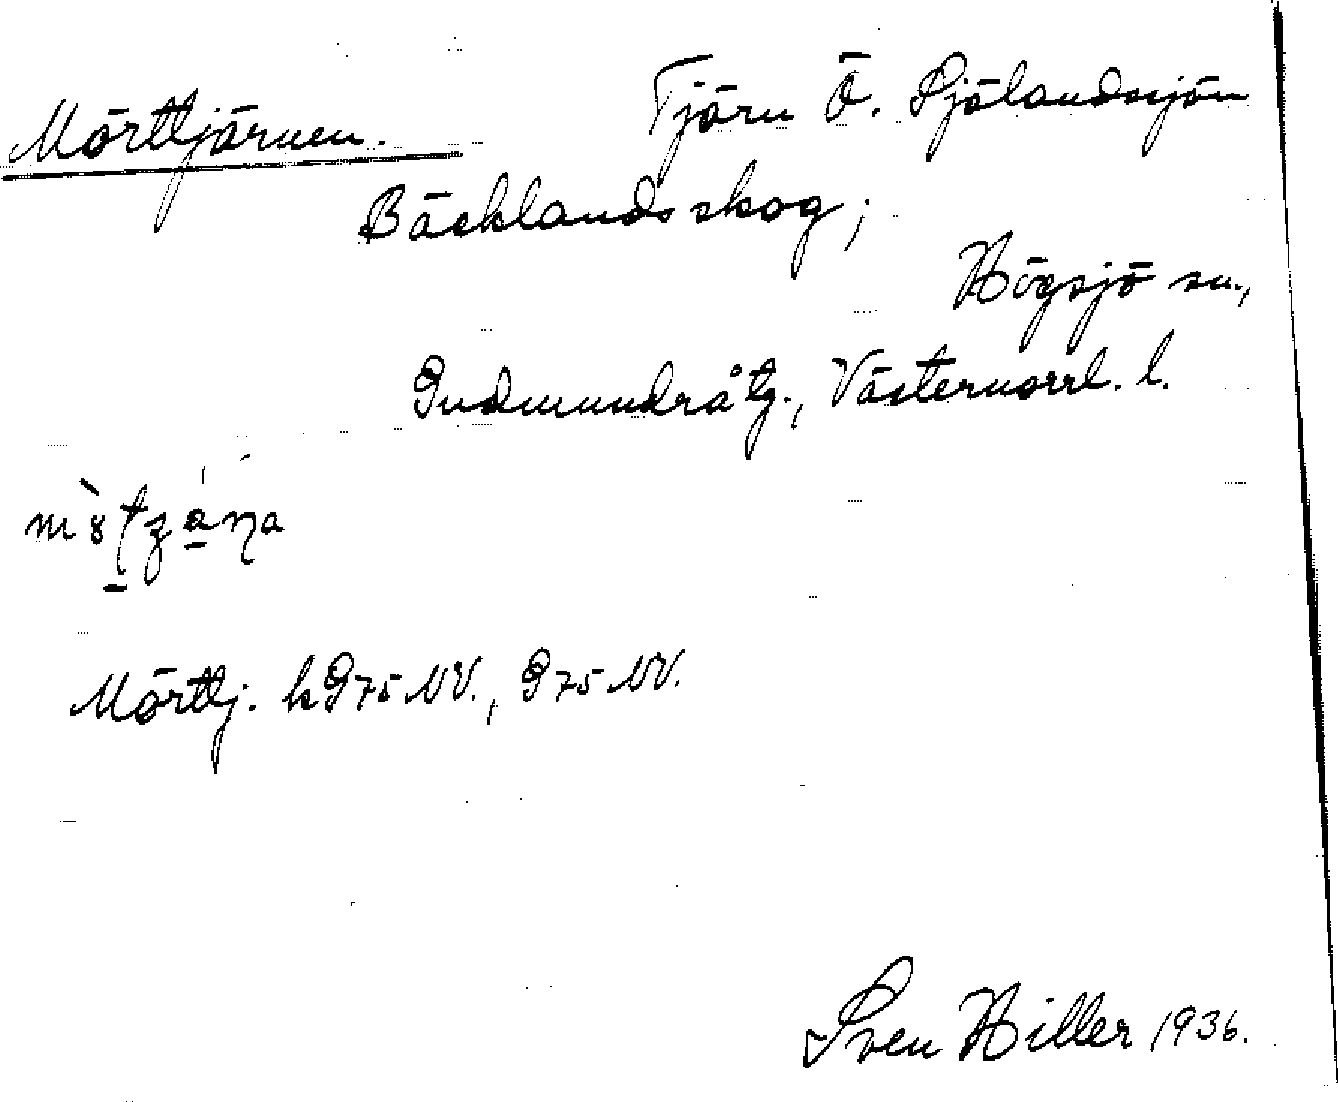 Mörttjärnen. Tjärn Ö. Sjölandssjön
Bäcklandsskog;
Högsjö sn.,
Gudmundrå tg., Västernorrl. l.
Mörttj. kG75NV., G75NV.
Sven Hiller 1936.